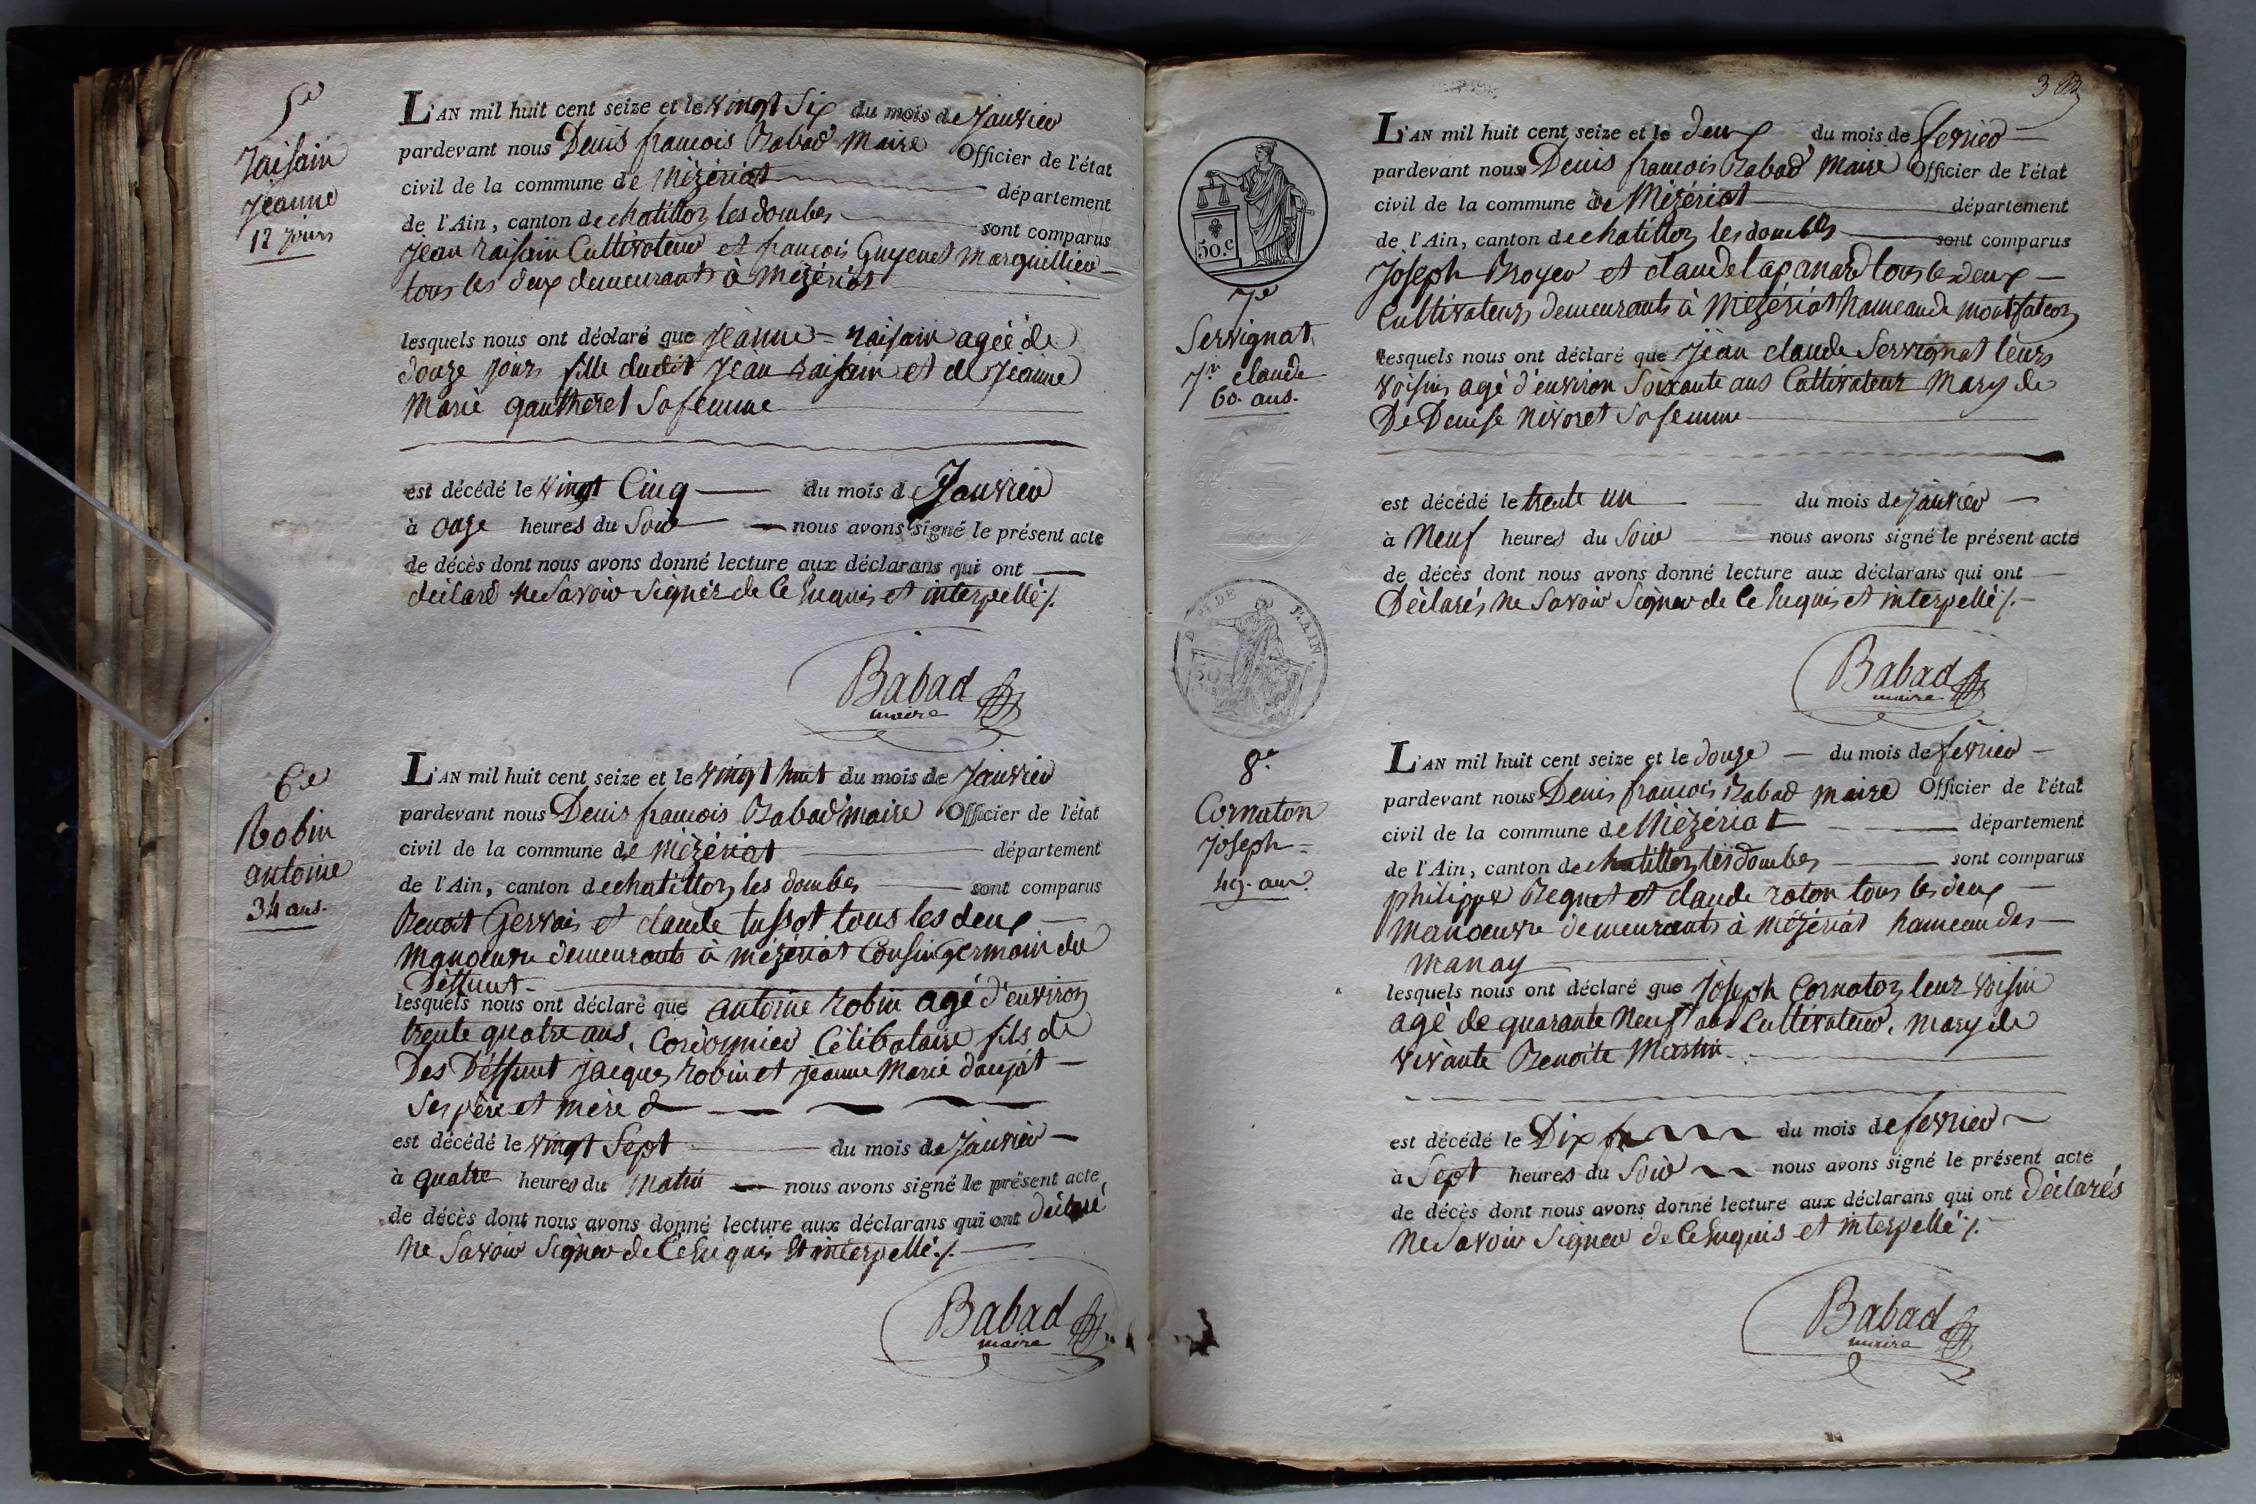 5e
Raisain
Jeanne
12 jours
L'AN mil huit cent seize et le vingt Six du mois de Janvier
pardevant nous Denis françois Babad Maire Officier de l'état
civil de la commune de Mézériat département
de l'Ain, canton de chatillon les dombes sont comparus
Jean raisain Cultivateur et françois Guyenet Marguillier
tous les deux demeurants à Mézériat
lesquels nous ont déclaré que Jeanne = raisain agée de
douze jours fille dudit Jean raisain et de Jeanne
Marie gautheret Sa femme
est décédé le vingt Cinq du mois d Janvier
à onze heures du Soir nous avons signé le présent acte
de décès dont nous avons donné lecture aux déclarans qui ont
déclaré ne Savoir Signer de Ce Enquis et interpellé ./.
Babad
maire
6e
Robin
antoine
34 ans.
L'AN mil huit cent seize et le vingt huit du mois de Janvier
pardevant nous Denis françois Babad maire Officier de l'état
civil de la commune de Mézériat département
de l'Ain, canton de chatillon les dombes sont comparus
Benoit Gervais et claude tussot tous les deux
Manoeuvre demeurants à mézériat Cousin germain du
Déffunt
lesquels nous ont déclaré que antoine robin agé d'environ
trente quatre ans, Cordonnier Célibataire fils de
Des Déffunt jacques robin et jeanne Marie daujat
Ses père et mère
est décédé le vingt Sept du mois de Janvier
à quatre heures du Matin nous avons signé le présent acte
de décès dont nous avons donné lecture aux déclarans qui ont déclaré
Ne Savoir Signer de Ce Enquis Et interpellé ./.
Babad
maire
3
50.c
7e
Servignat
Jn claude
60. ans.
L'AN mil huit cent seize et le deux du mois de fevrier
pardevant nous Denis françois Babad Maire Officier de l'état
civil de la commune de Mézériat département
de l'Ain, canton de chatillon les dombes sont comparus
Joseph Broyer et claude lapanard tous les deux
Cultivateurs demeurants à Mézériat hameau de montfalcon
lesquels nous ont déclaré que Jean claude Servignat leurs
voisins agé d'environ Soixante ans Cultivateur Mary de
De Denise Nivoret Sa femme
est décédé le trente un du mois de Janvier
à Neuf heures du Soir nous avons signé le présent acte
de décès dont nous avons donné lecture aux déclarans qui ont
Déclarés Ne Savoir Signer de Ce Enquis et interpellé ./.
Babad
maire
DE L'AIN.
50
8e
Cornaton
Joseph =
49. ans.
L'AN mil huit cent seize et le douze du mois de fevrier
pardevant nous Denis françois Babad maire Officier de l'état
civil de la commune de Mézériat département
de l'Ain, canton de chatillon les dombes sont comparus
philippe Bequet et claude raton tous les deux
Manoeuvre demeurants à mézériat hameau des
Manay
lesquels nous ont déclaré que Joseph Cornaton leur voisin
agé de quarante Neuf ans Cultivateur, Mary de
vivante Benoite Martin
est décédé le Dix du mois de fevrier
à Sept heures du Soir nous avons signé le présent acte
de décès dont nous avons donné lecture aux déclarans qui ont Déclarés
Ne Savoir Signer de Ce Enquis et interpellé ./.
Babad
maire